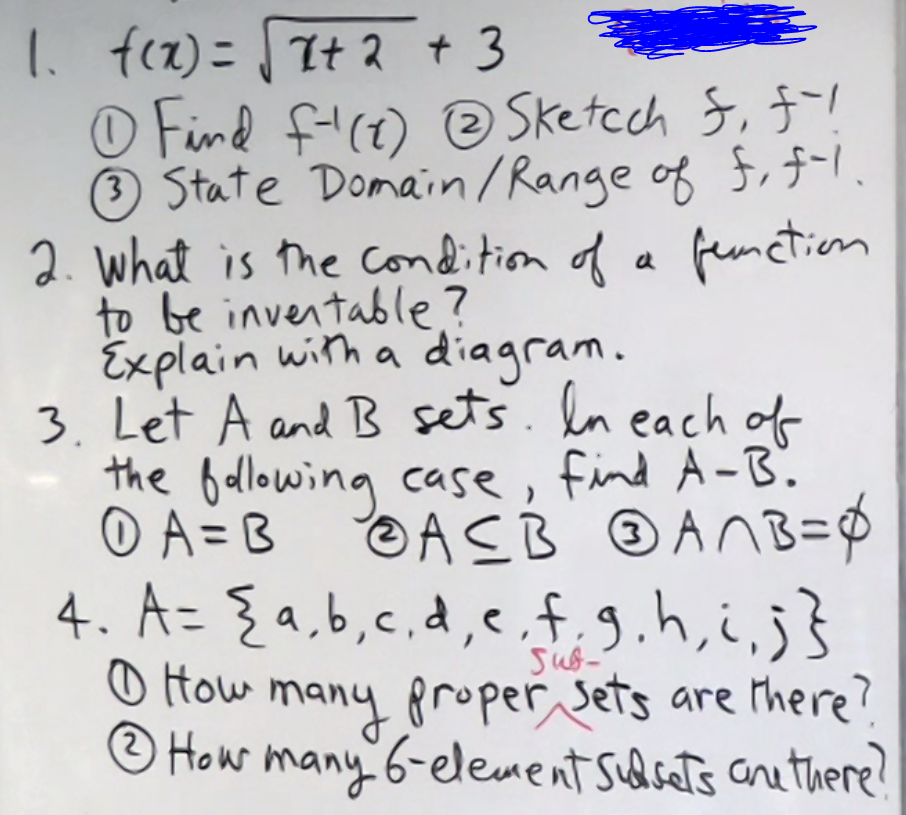 1. f(x) = √x+2 + 3
① Find f-1(x) ② Sketcch f, f-1
③ State Domain/Range of f, f-1.
2. What is the condition of a function
to be inventable?
Explain with a diagram.
3. Let A and B sets. In each of
the following case, find A-B.
① A=B ② A⊆B ③ A∩B=∅
4. A= {a,b,c,d,e,f,g,h,i,j}
sub-
① How many proper ^ sets are there?
② How many 6-element subsets are there?